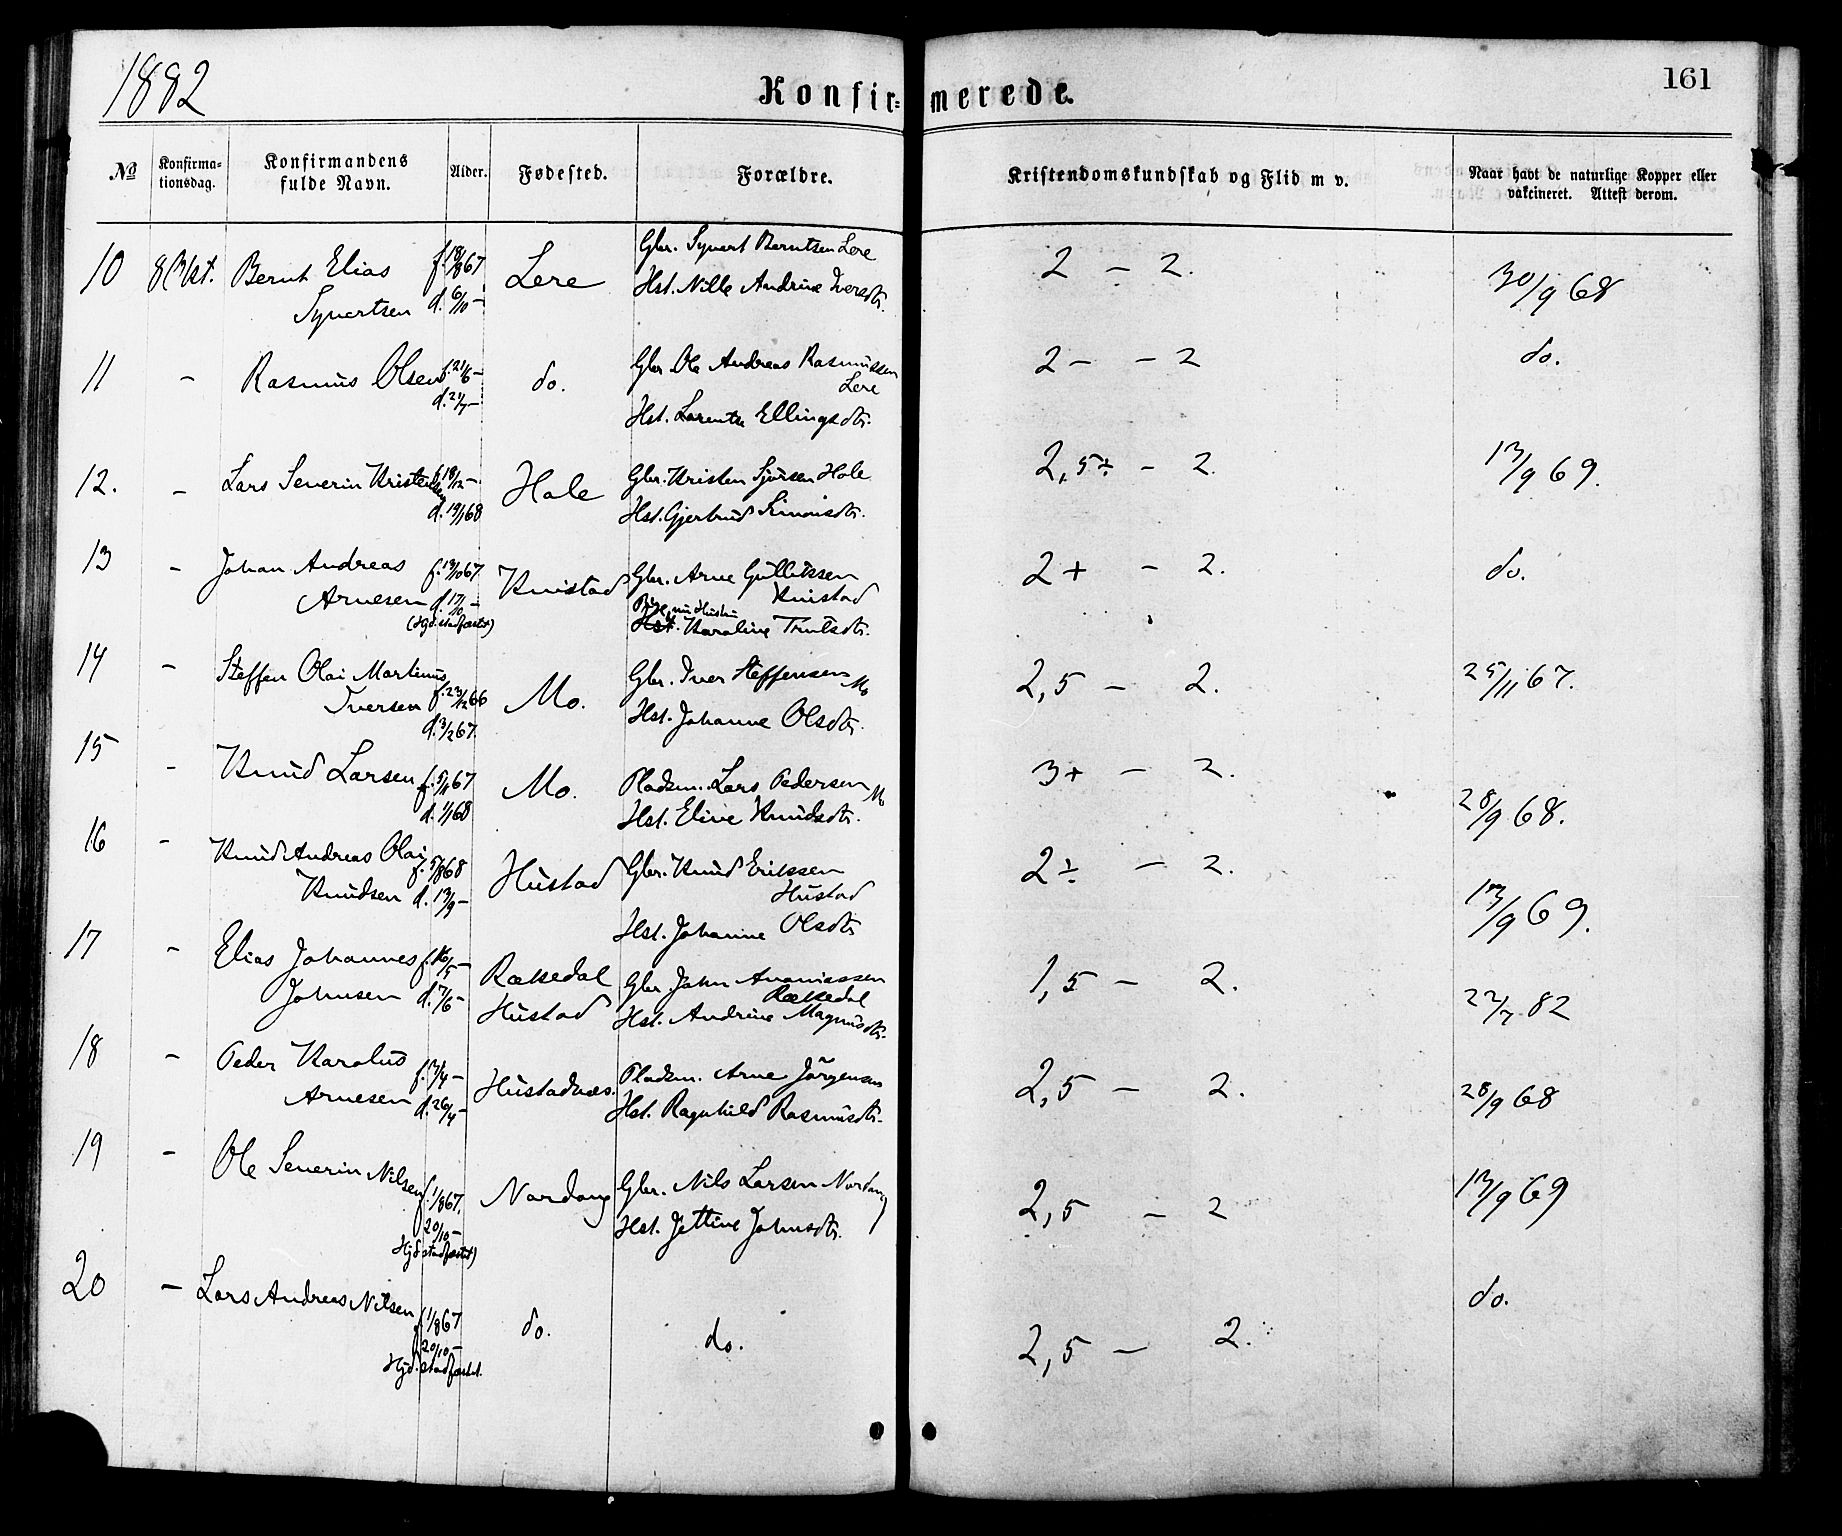 1882
Konfir=merede.
161
№
Konfirma-
tionsdag.
Konfirmandens
fulde Navn.
Alder.
Fødested.
Forældre.
Kristendomskundskab og Flid m v.
Naar havt de naturlige Kopper eller
vakcineret. Attest derom.
10 Bernt Elias f. 18/8 67 Lere Gbr. Syvert Berntsen Lere 2 – 2. 30/9 68
Syvertsen d. 6/10 – Hst. Nille Andrine Iversdtr.
11 – Rasmus Olsen f. 21/6 – do. Gbr. Ole Andreas Rasmussen 2 – – 2 do.
d. 21/7 – Lere
Hst. Lorentze Ellingsdtr.
12. – Lars Severin Kristensen f. 18/12 – Hole Gbr. Kristen Sjursen Hole 2,5÷ – 2. 13/9 69.
d. 19/1 68 Hst. Gjertrud Simonsdtr.
13 – Johan Andreas f. 13/10 67 Knistad Gbr. Arne Gullikssen 2+ – 2. do.
Arnesen d. 17/10 – Knistad
(Hjd. stadfæstet) Pige, nu Hustru
Hst. Karoline Trulsdtr.
14 – Steffen Olai Martinus Mo. Gbr. Iver Steffensen Mo 2,5 – 2. 25/11 67.
Iversen f. 23/12 66 Hst. Johanne Olsdtr.
d. 3/2 67.
15 – Knud Larsen f. 5/11 67 Mo. Pladsm. Lars Pedersen Mo 3+ – 2. 28/9 68.
d. 1/1 68 Hst. Eline Knudsdtr.
16 – Knud Andreas Olai f. 5/8 68 Hustad Gbr. Knud Erikssen 2÷ – 2. 13/9 69.
Knudsen d. 13/9 – Hustad
Hst. Johanne Olsdtr.
17 – Elias Johannes f. 16/5 – Rækkedal Gbr. John Ananiassen 1,5 – 2. 22/7 82
Johnsen d. 7/6 – Hustad Rækkedal
Hst. Andrine Magnusdtr.
18 – Peder Karolus Hustadnæs. Pladsm. Arne Jörgensen 2,5 – 2. 28/9 68
Arnesen d. 26/4 – Hst. Ragnhild Rasmusdtr.
19 – Ole Severin Nilsen f. 1/8 67. Nordang Gbr. Nils Larsen Nordang 2,5 – 2 13/9 69
20/10 – Hst. Jettine Johnsdtr.
Hjd stadfæstet)
20 – Lars Andreas Nilsen f. 1/8 67 do. do. 2,5 – 2. do.
20/10 –
Hjd. stadfæstet.